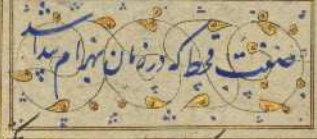 صفت قحط که در زمان بهرام پیدا شد